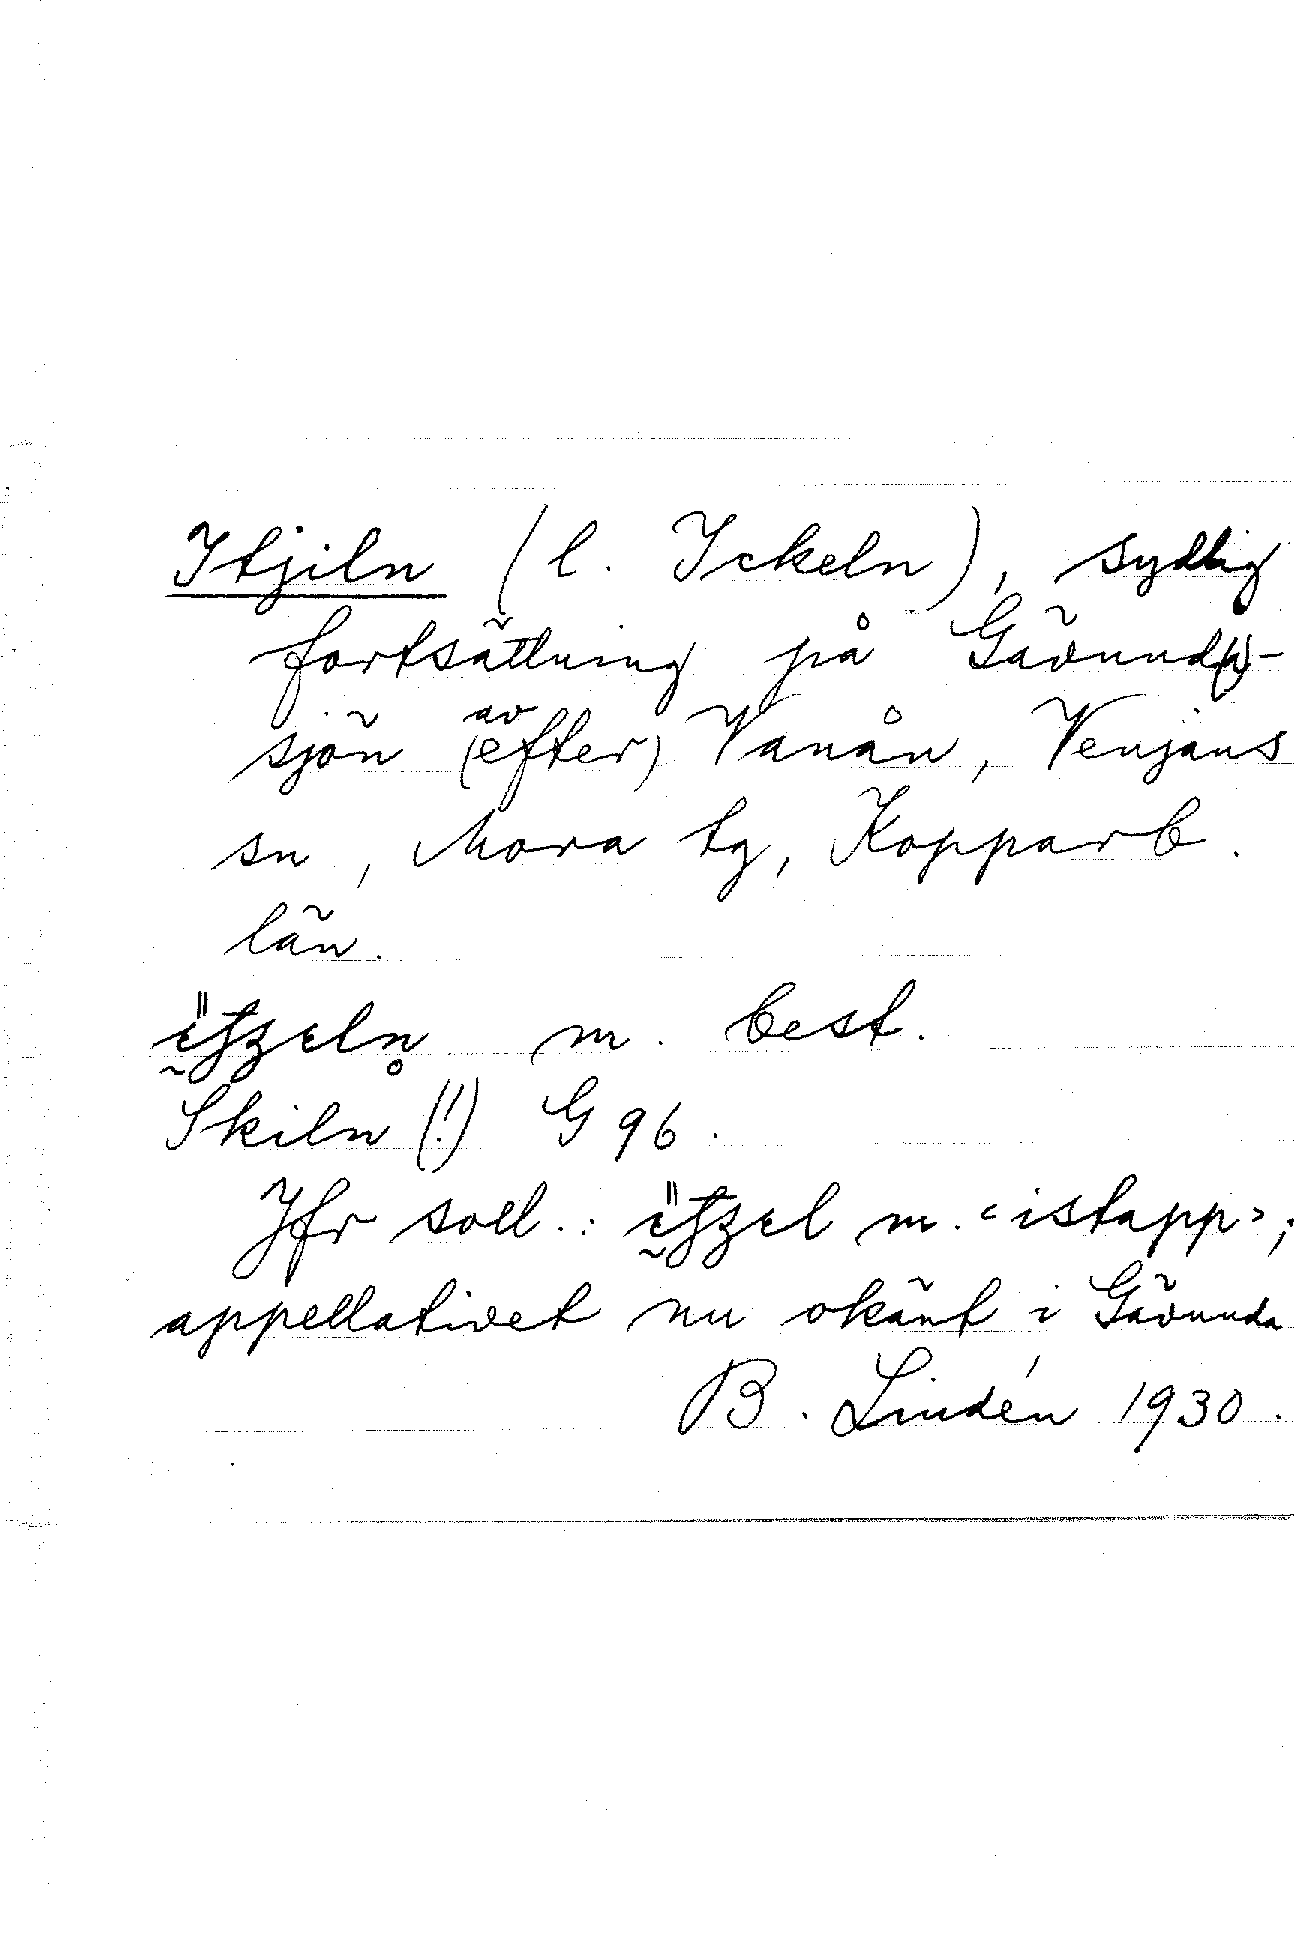 Itjiln (l. Ickeln), sydlig
fortsättning på Gävund(a)-
sjön av (efter) Vanån, Venjans
sn, Mora tg, Kopparb.
län.
m. best.
Skiln (!) G 96.
Jfr soll.: m. <istapp>;
appellativet nu okänt i Gävunda
B. Lindén 1930.